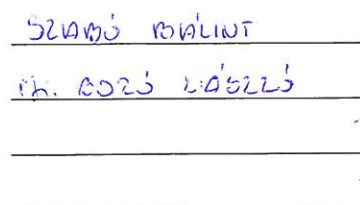 SZABÓ BÁLINT
Ifj. BOZÓ LÁSZLÓ